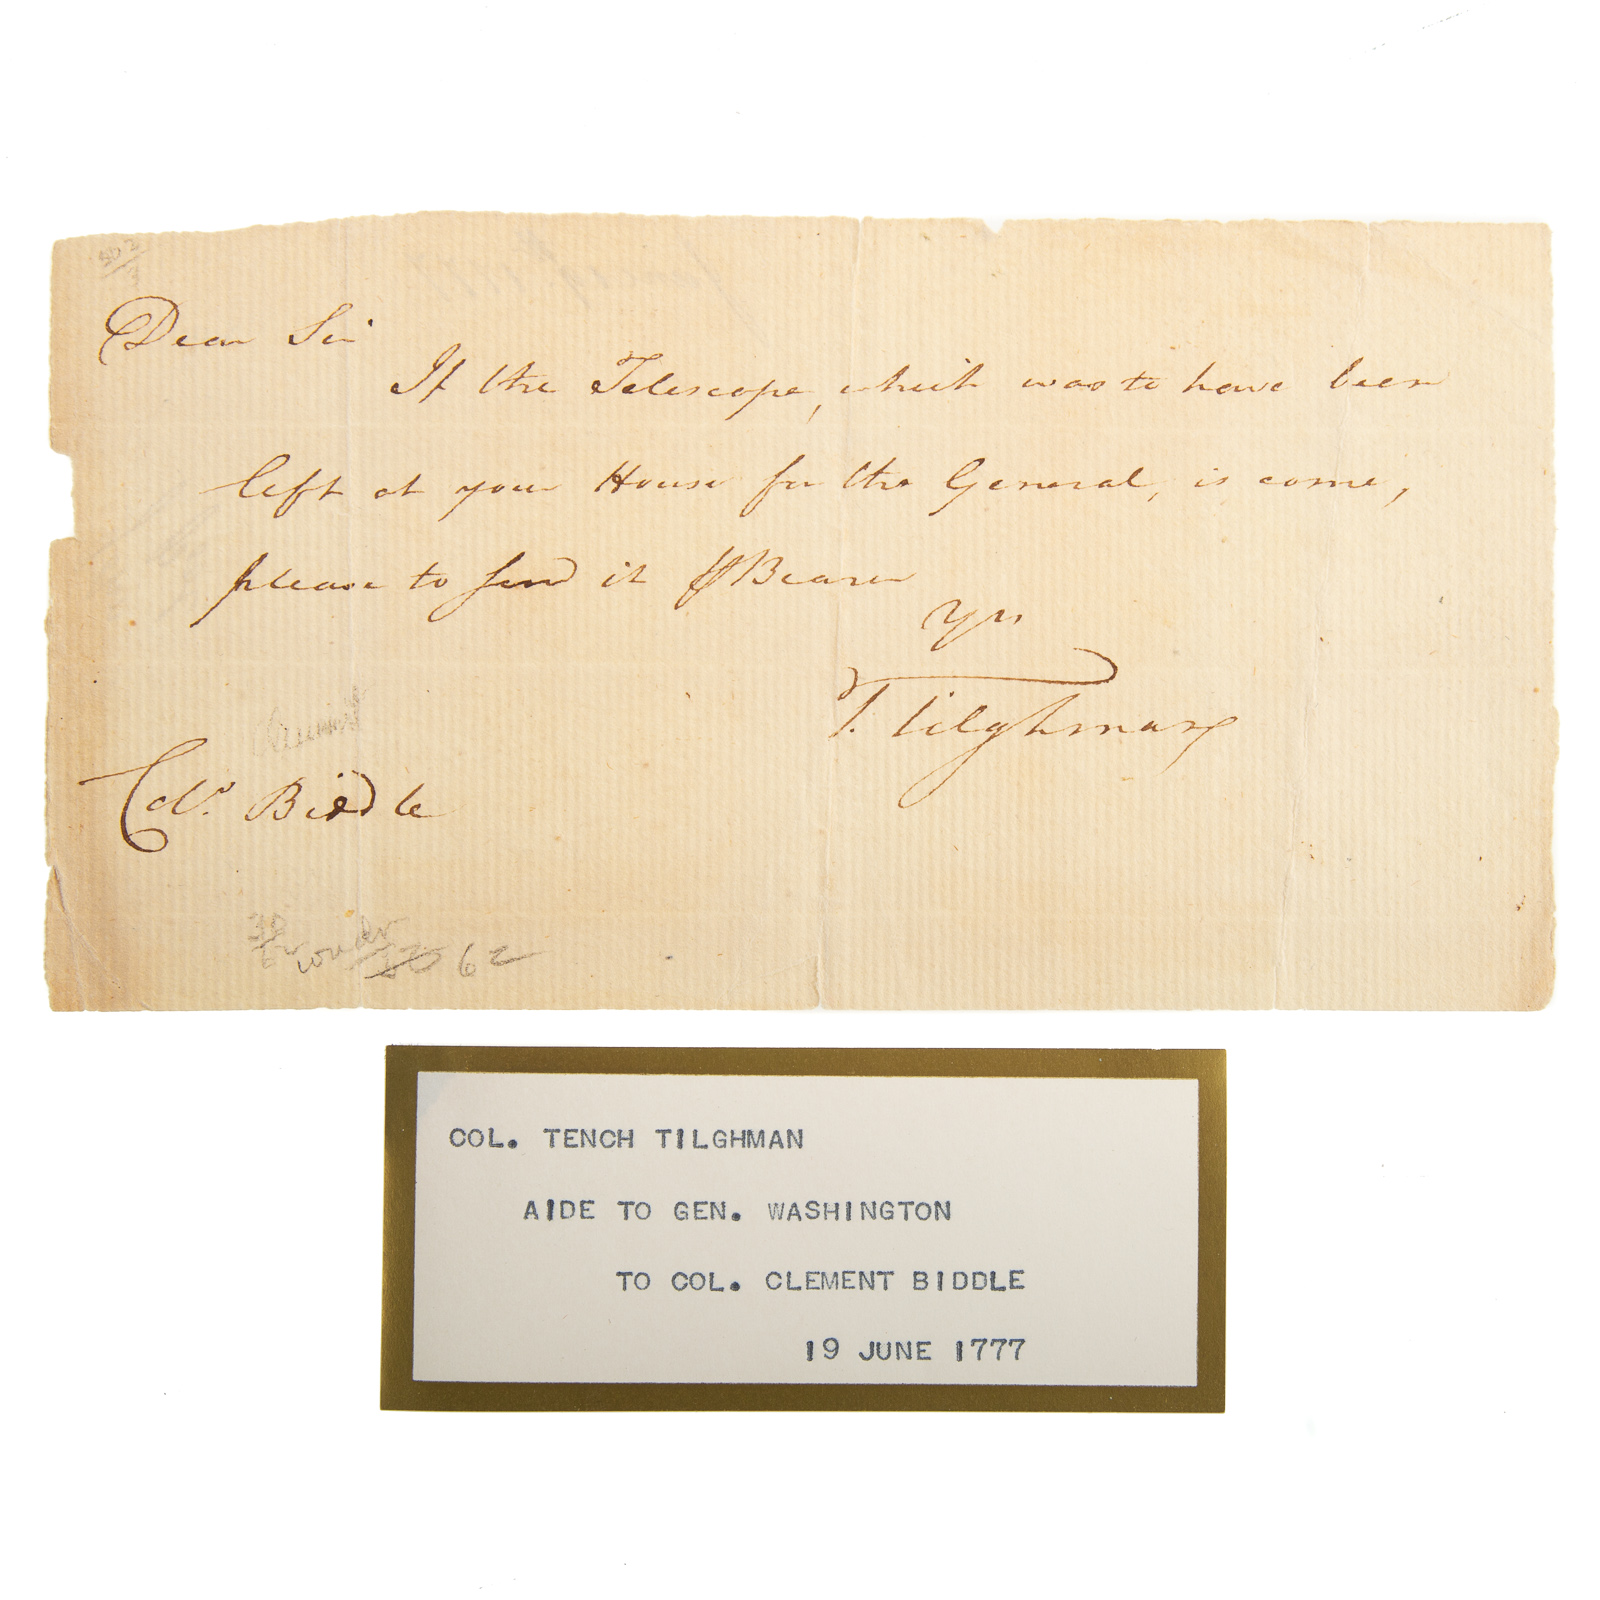 Dear Sir
If the Telescope, which was to have been
left at your House for the General, is come,
please to send it ⅌ Bearer
Yrs
T. Tilghman
Clement
Colo. Biddle
62
COL. TENCH TILGHMAN
AIDE TO GEN. WASHINGTON
TO COL. CLEMENT BIDDLE
19 JUNE 1777